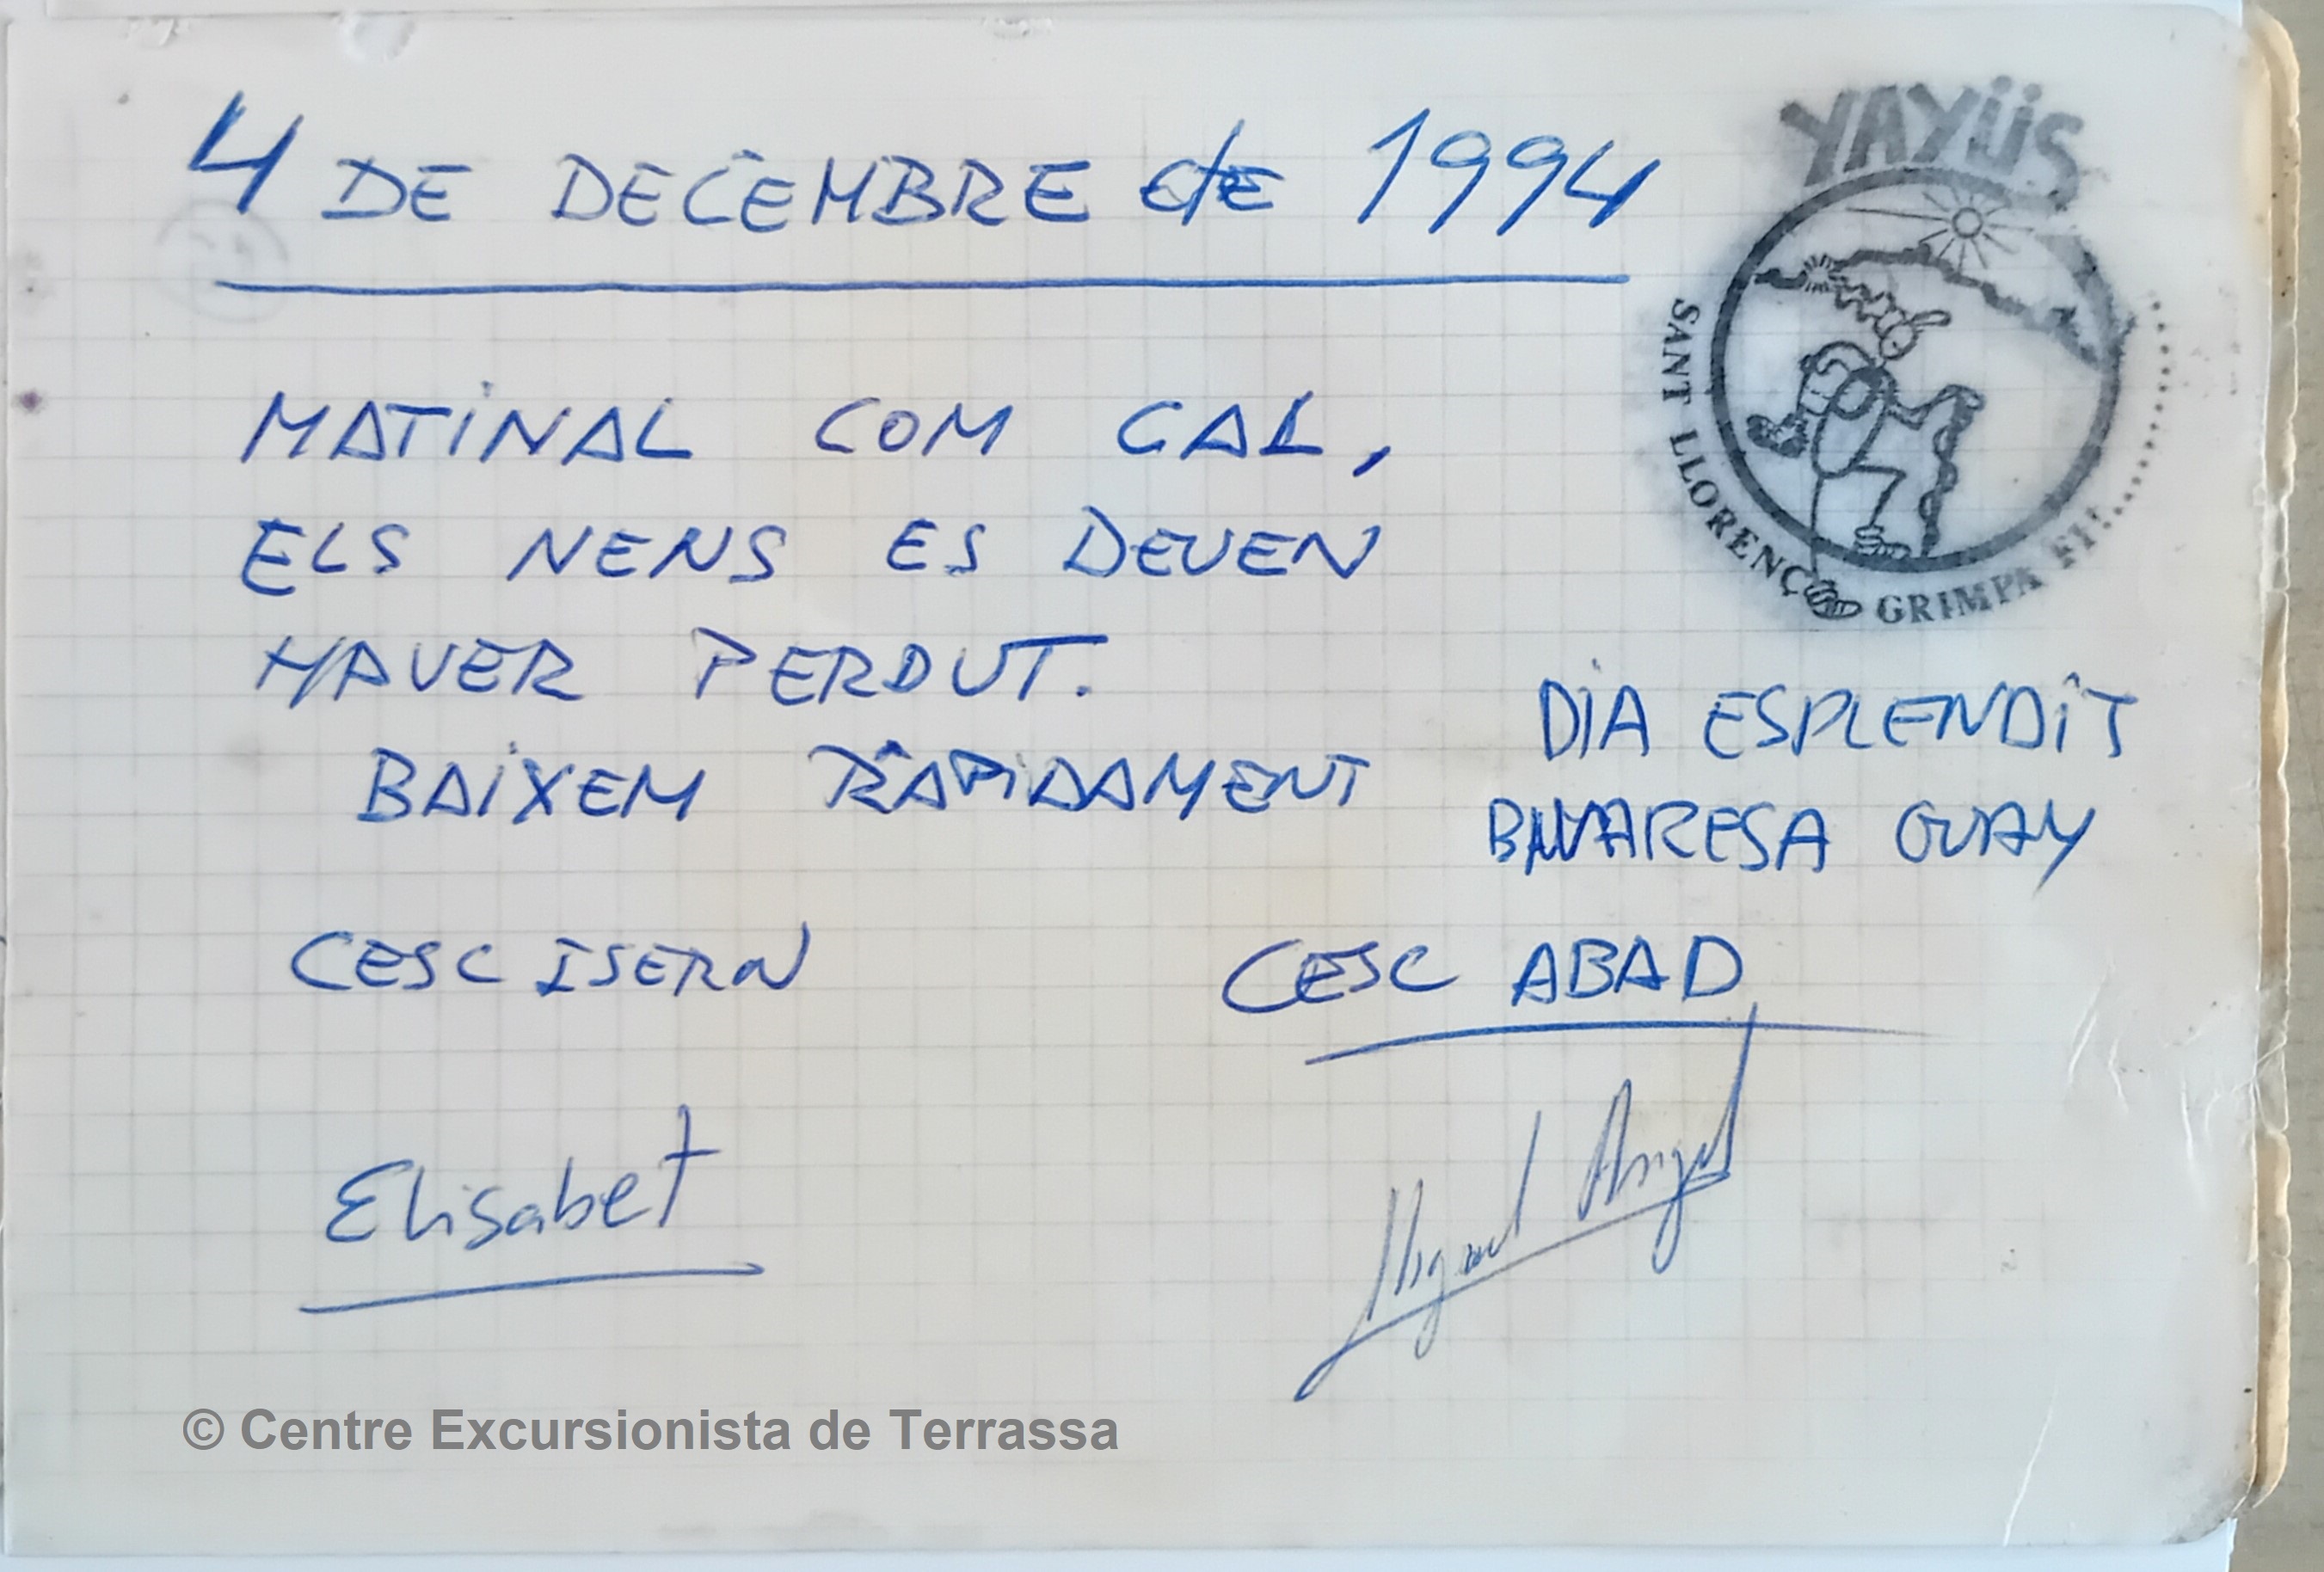 4 DE DECEMBRE de 1994
YAYÜS
SANT LLORENÇ GRIMPA
MATINAL COM CAL,
ELS NENS ES DEVEN
HAVER PERDUT.
BAIXEM RÀPIDAMENT
DIA ESPLENDIT
GUAY
CESC ISERN
CESC ABAD
Elisabet
Miguel Angel
© Centre Excursionista de Terrassa